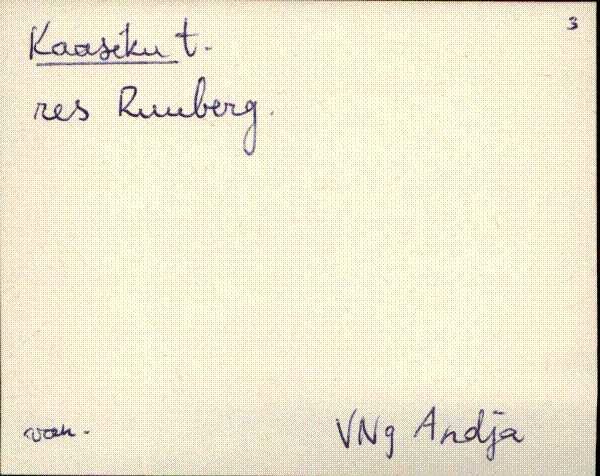 3
Kaasiku t.
res Ruuberg.
van.
VNg Andja